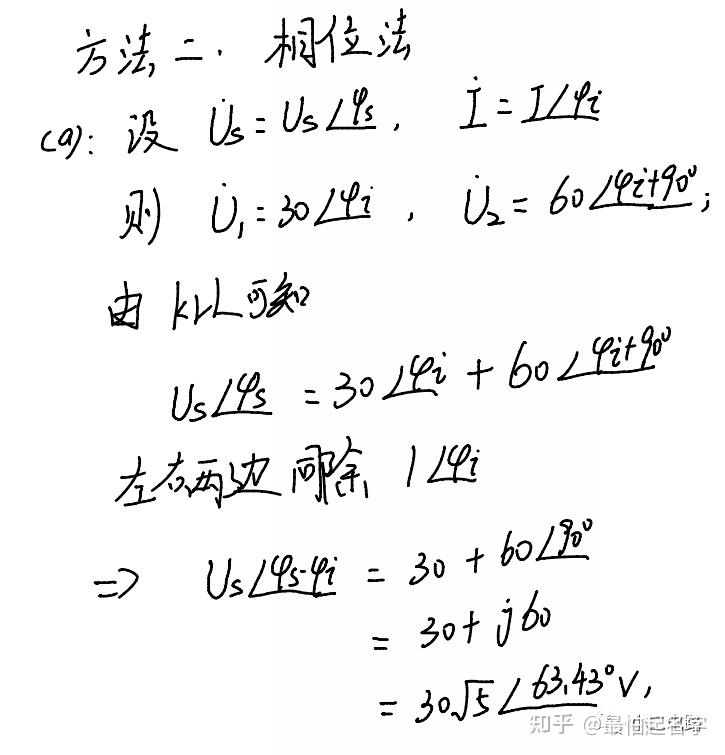 方法二. 相位法
(a): 设 U̇s = Us∠φs, İ = I∠φi
则 U̇₁ = 30∠φi , U̇₂ = 60∠φi+90° ;
由 kVL可知
Us∠φs = 30∠φi + 60∠φi+90°
左右两边同除 1∠φi
=> Us∠φs-φi = 30 + 60∠90°
= 30 + j60
= 30√5∠63.43° V,
知乎 @最怕起名字